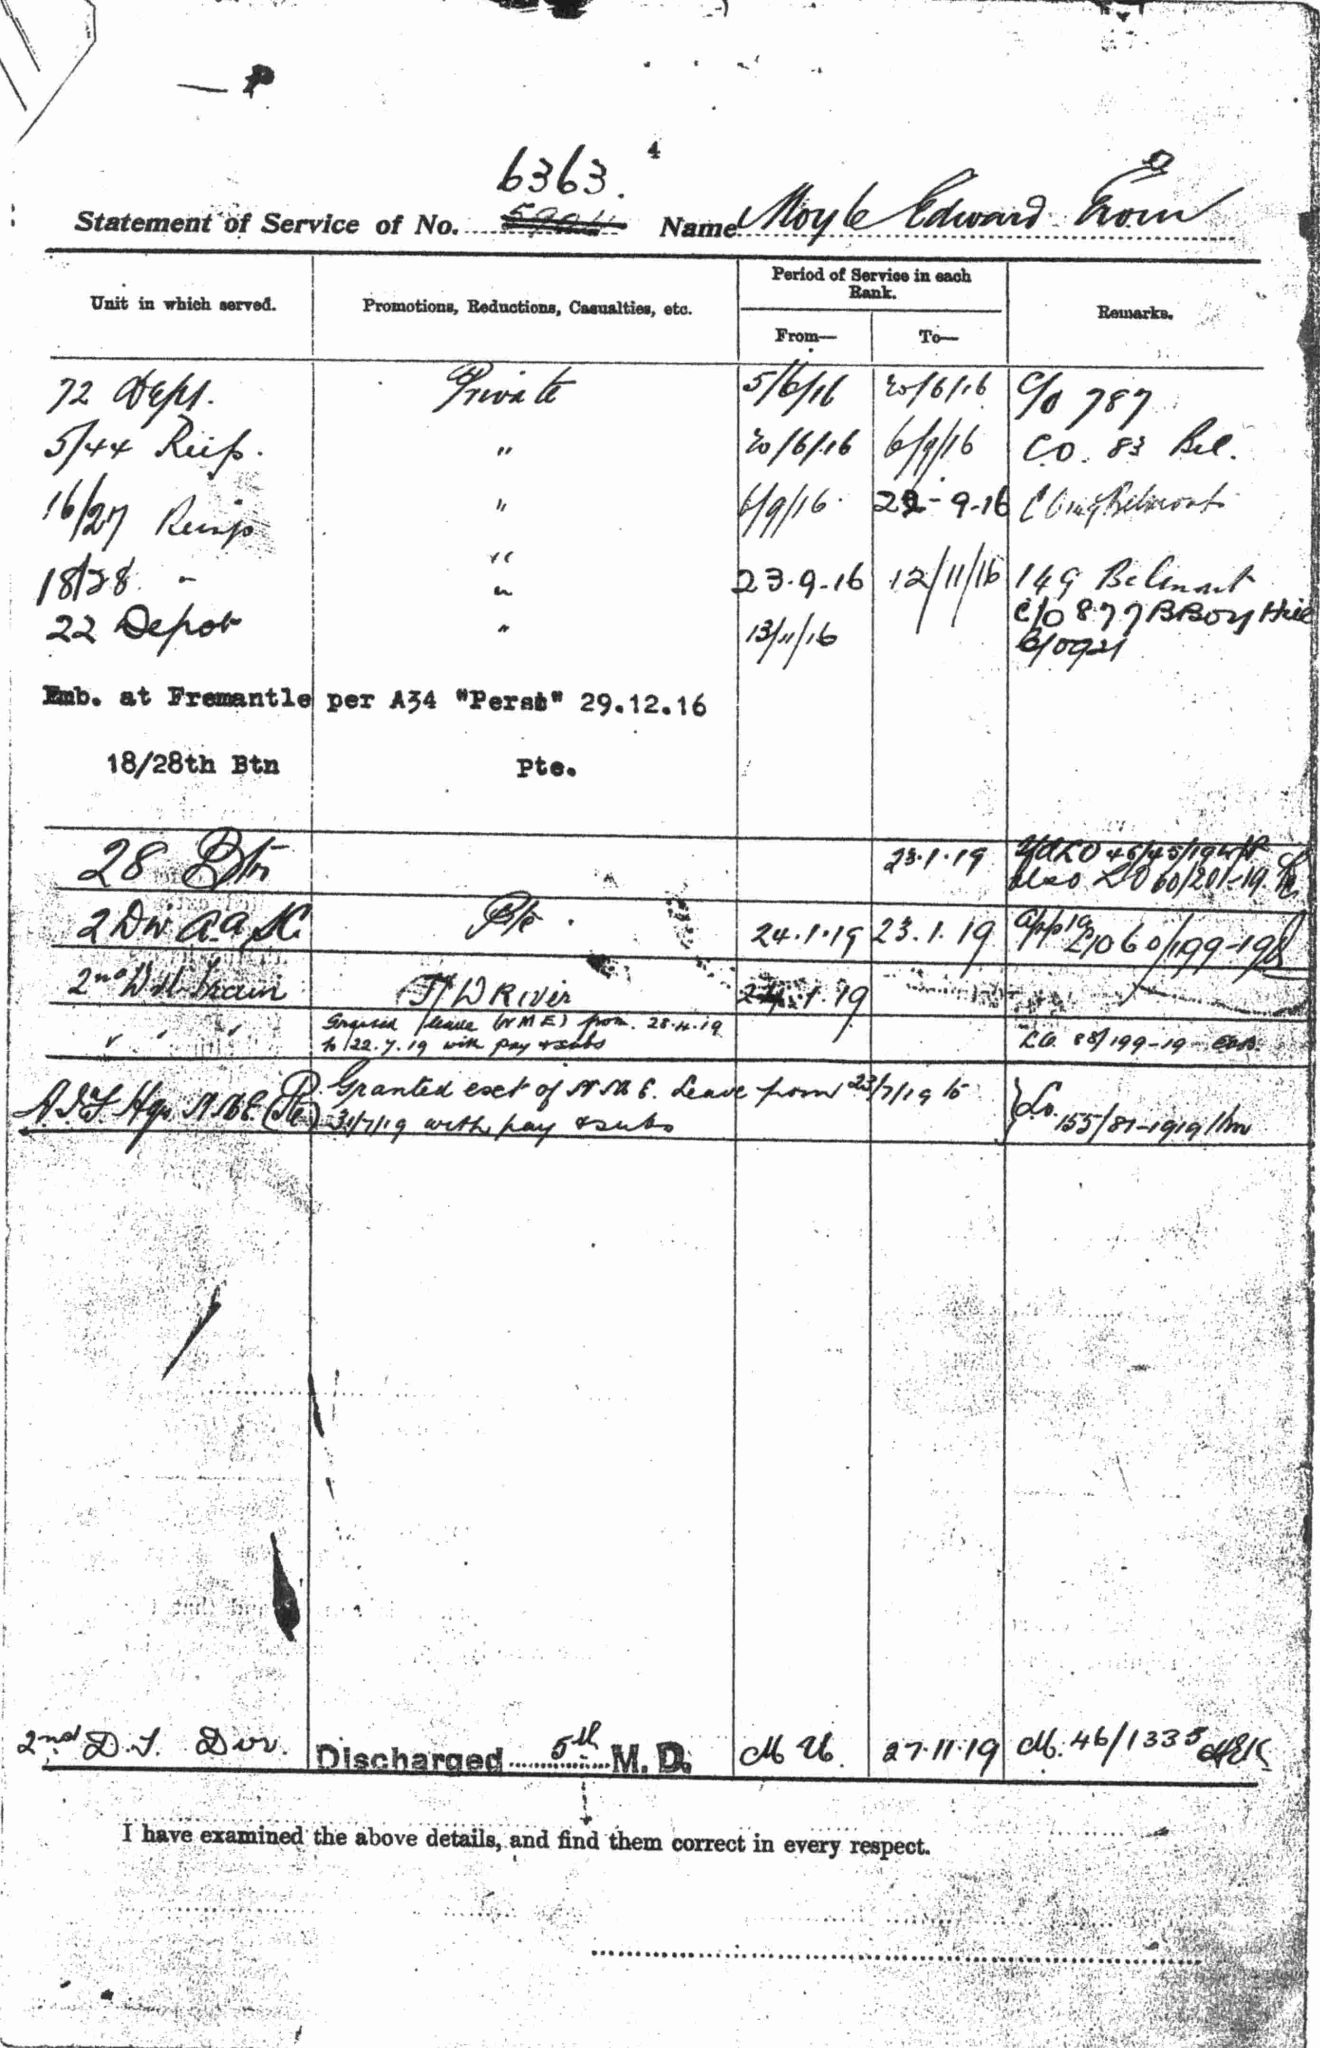 4
6363.
Statement of Service of No. Name Moyle Edward
Unit in which served. Promotions, Reductions, Casualties, etc. Period of Service in each Rank. Remarks.
From— To—
72 Dept. Private 5/6/16 20/6/16 C/O 787
5/44 Reif. " 20/6/16 6/9/16 C.O. 83 Bel.
16/27 Reinfs " 6/9/16 22-9-16 Belmont
18/28 " " 23.9.16 12/11/16 149 Belmont
22 Depot " 13/11/16 C/O 877 BBoy Hill
Emb. at Fremantle per A34 "Persi" 29.12.16
18/28th Btn Pte.
28 Btn 23.1.19 45/19
also LO 60/201-19
2 Div Pte. 24.1.19 23.1.19 LO 60/199-19
2nd Train T/Driver 24.1.19
" " " Granted leave (NME) from 28.4.19
to 22.7.19 with pay & subs LO. 88/199-19
A.I.F. Hqs. N.M.E. (Pte.) Granted ext of N.M.E. Leave from 23/7/19 to
31/7/19 with pay & subs Lo. 155/81-1919
2nd D.T. Div. Discharged 5th M.D. 27.11.19 M. 46/1335
I have examined the above details, and find them correct in every respect.